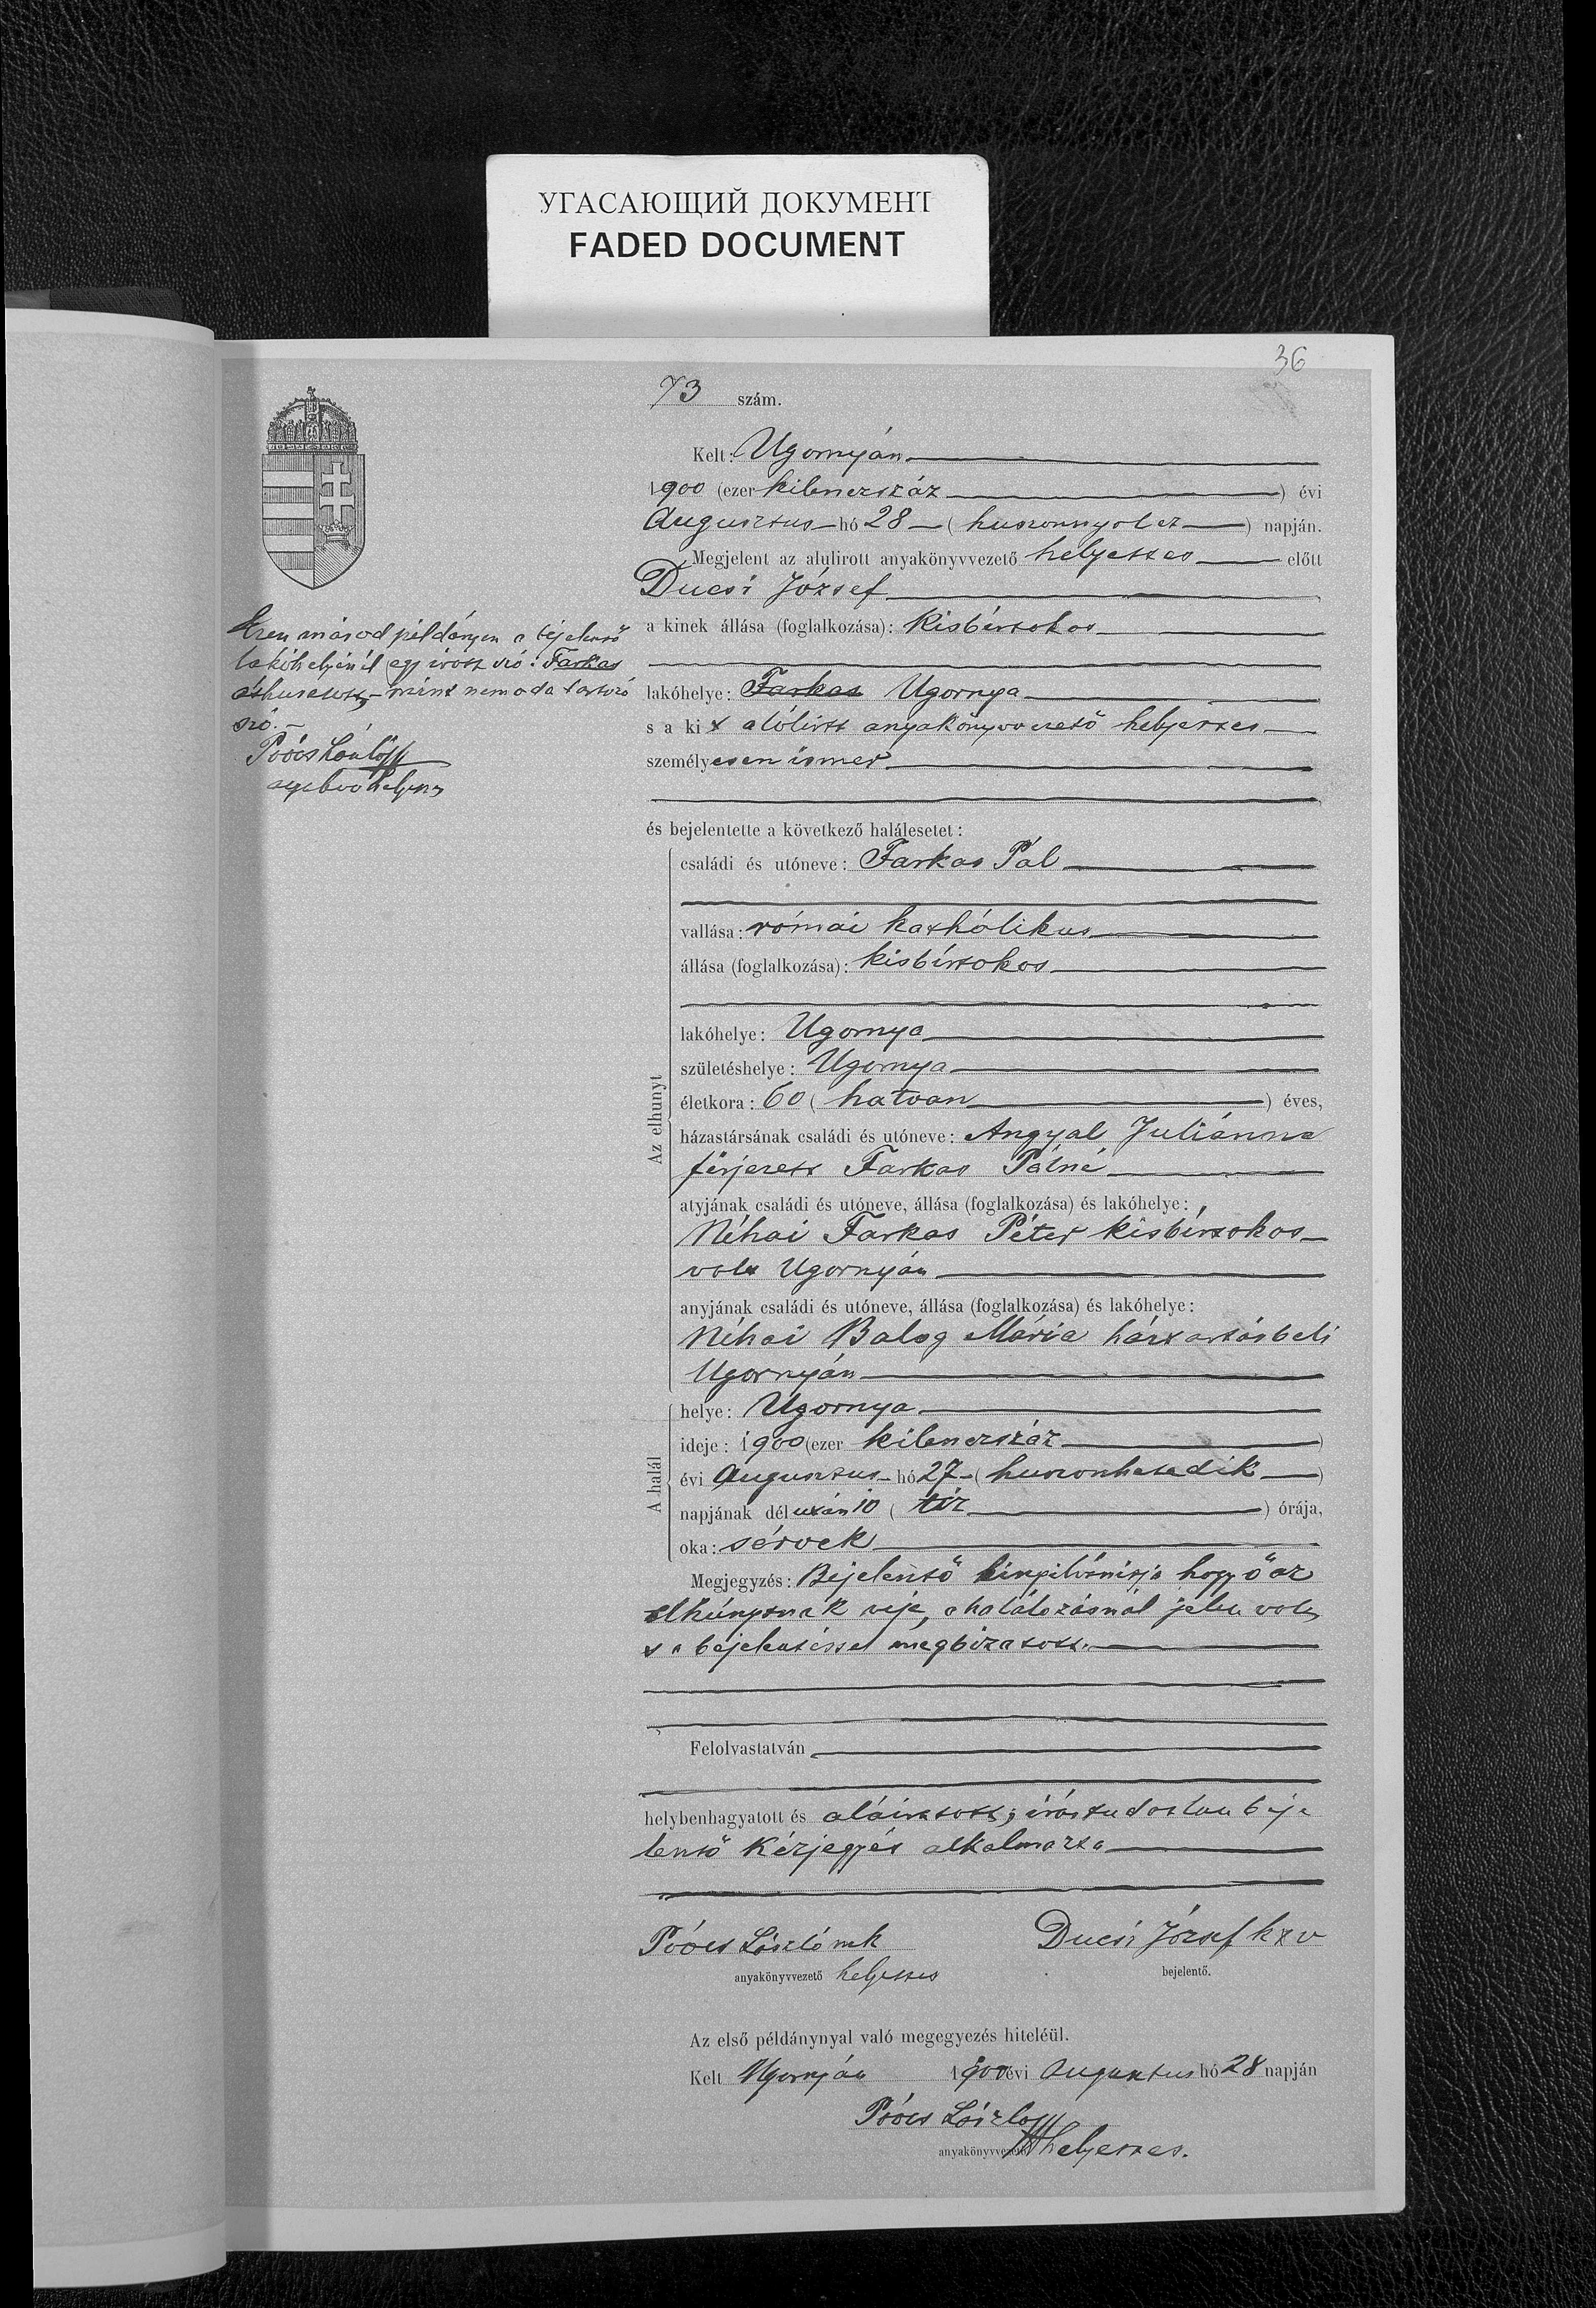 УГАСАЮЩИЙ ДОКУМЕНТ
FADED DOCUMENT
36
73 szám.
Kelt: Ugornyán
1900 (ezer kilenczszáz) évi
Augusztus hó 28 (huszonnyolcz) napján.
Megjelent az alulirott anyakönyvvezető helyettes előtt
Ducsi József
a kinek állása (foglalkozása): kisbirtokos
lakóhelye: Farkas Ugornya
s a kit alólirtt anyakönyvvezető helyettes
személyesen ismer
Ezen másod példányon a bejelentő
lakóhelyénél egy írott szó: Farkas
áthuzatott, mint nem oda tartozó
szó.
Poócs László
és bejelentette a következő halálesetet:
Az elhunyt
családi és utóneve: Farkas Pál
vallása: római kathólikus
állása (foglalkozása): kisbírtokos
lakóhelye: Ugornya
születéshelye: Ugornya
életkora: 60 (hatvan) éves,
házastársának családi és utóneve: Angyal Juliánna
férjezett Farkas Pálné
atyjának családi és utóneve, állása (foglalkozása) és lakóhelye:
Néhai Farkas Péter kisbírtokos
volt Ugornyán
anyjának családi és utóneve, állása (foglalkozása) és lakóhelye:
Néhai Balog Mária háztartásbeli
Ugornyán
A halál
helye: Ugornya
ideje: 1900 (ezer kilenczszáz)
évi Augusztus hó 27 (huszonhetedik)
napjának délután 10 (tíz) órája,
oka: sérvek
Megjegyzés: Bejelentő kinyilvánitja hogy ő az
elhúnytnak veje, a halálozásnál jelen volt,
s a bejelentéssel megbizatott.
Felolvastatván
helybenhagyatott és aláiratott; írástudatlan beje
lentő kézjegyét alkalmazta
Poócs László mk
anyakönyvvezető helyettes
Ducsi József kxv
bejelentő.
Az első példánynyal való megegyezés hiteléül.
Kelt Ugornyán 1900 évi Augusztus hó 28 napján
Poócs László
anyakönyvvezető helyettes.